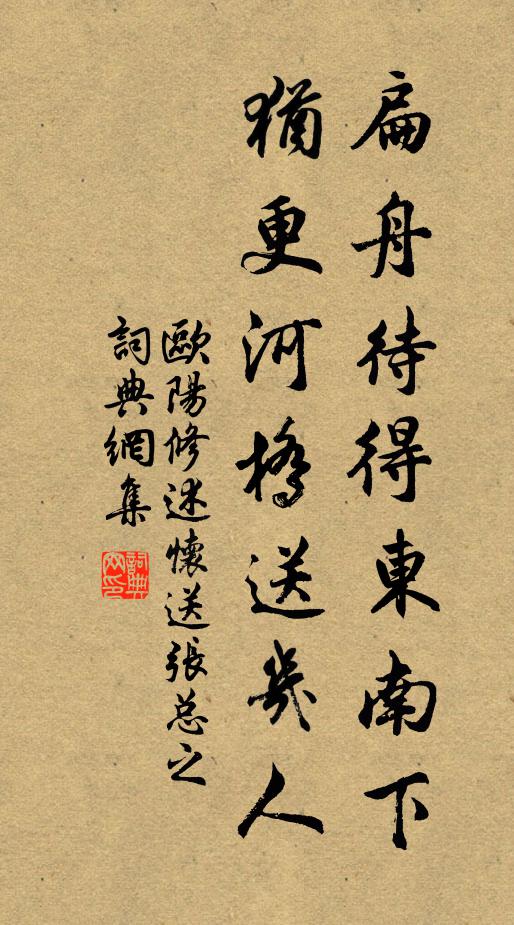 扁舟待得東南下
猶更河橋送幾人
歐陽修述懷送張惣之
詞典網集
詞典網印